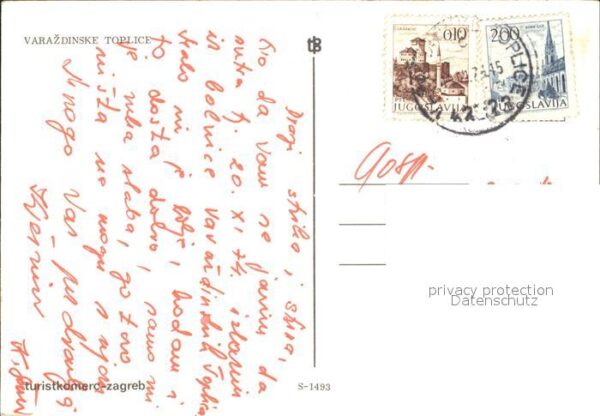 VARAŽDINSKE TOPLICE
tB
0,10
2,00
JUGOSLAVIJA
JUGOSLAVIJA
TOPLICE
Dragi striko i strina,
Evo da Vam se javim, da
sutra tj. 20. XI 74. izlazim
iz bolnice Varaždinskih Toplica
malo mi je bolje, hodam i
to dosta dobro, samo mi
je ruka slaba, gotovo
ništa ne mogu s njom
Mnogo Vas pozdravljaju
Gosp.
privacy protection
Datenschutz
turistkomerc-zagreb
S-1493